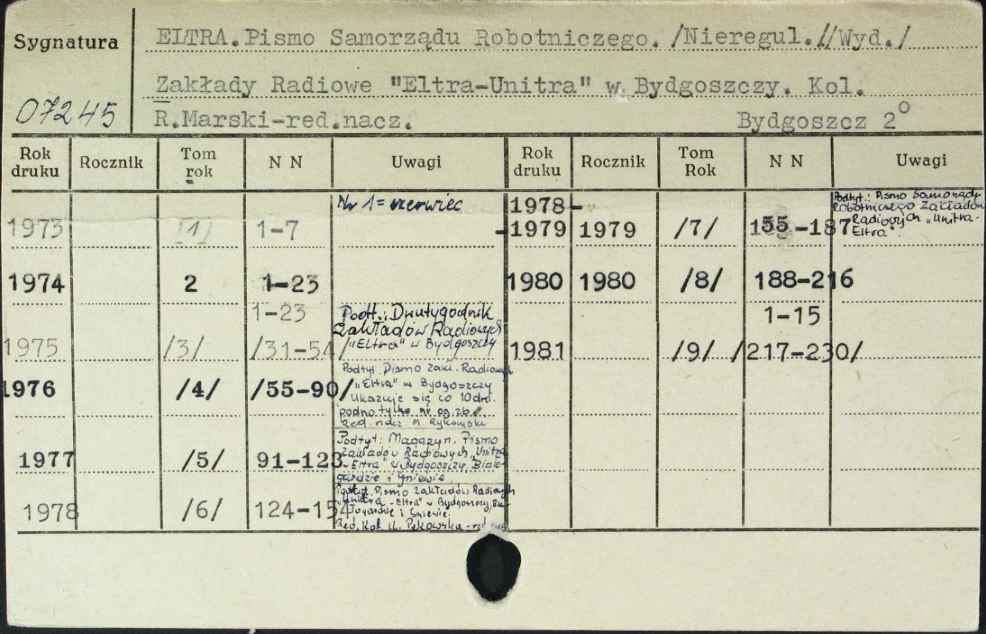 Sygnatura
07245
ELTRA.Pismo Samorządu Robotniczego./Nieregul.//Wyd./
Zakłady Radiowe "Eltra-Unitra" w Bydgoszczy. Kol.
R.Marski-red.nacz. Bydgoszcz 2°
Rok druku Rocznik Tom rok N N Uwagi Rok druku Rocznik Tom Rok N N Uwagi
1973 [1] 1-7 Nr 1 = czerwiec
1974 2 1-23
1975 /3/ 1-23 /31-54/ Podt.: Dwutygodnik
Zakładów Radiowych
"Eltra" w Bydgoszczy
1976 /4/ /55-90/ Podtyt. Pismo Zakł. Radiowych
"Eltra" w Bydgoszczy
Ukazuje się co 10 dni
podno. tylko nr og. zb.
Red. nacz. M. Rykowski
1977 /5/ 91-123 Podtyt: Magazyn. Pismo
Zakładów Radiowych "Unitra
-Eltra" w Bydgoszczy, Biało-
gardzie i Gniewie
1978 /6/ 124-154 Podtyt. Pismo Zakładów Radiowych
"Unitra-Eltra" w Bydgoszczy, Bia-
łogardzie i Gniewie.
Red. Kol.
1978-
-1979 1979 /7/ 155-187 Podtyt: Pismo Samorządu
Robotniczego Zakładów
Radiowych "Unitra-
Eltra".
1980 1980 /8/ 188-216
1981 /9/ 1-15 /217-230/